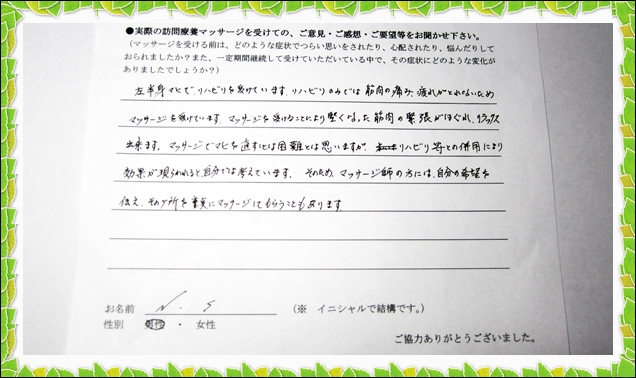 ●実際の訪問療養マッサージを受けての、ご意見・ご感想・ご要望等をお聞かせ下さい。
(マッサージを受ける前は、どのような症状でつらい思いをされたり、心配されたり、悩んだりして
おられましたか？また、一定期間継続して受けていただいている中で、その症状にどのような変化が
ありましたでしょうか？)
左半身マヒで、リハビリを受けています。リハビリのみでは筋肉の痛み、疲れがとれないため
マッサージを受けています。マッサージを受けることにより堅くなった筋肉の緊張がほぐれ、リラックス
出来ます。マッサージでマヒを直すことは困難とは思いますが、リハビリ等との併用により
効果が現われると自分では考えています。そのため、マッサージ師の方には、自分の希望を
伝え、その箇所を重点にマッサージしてもらうこともあります。
お名前 N. S (※ イニシャルで結構です。)
性別 男性 ・ 女性
ご協力ありがとうございました。